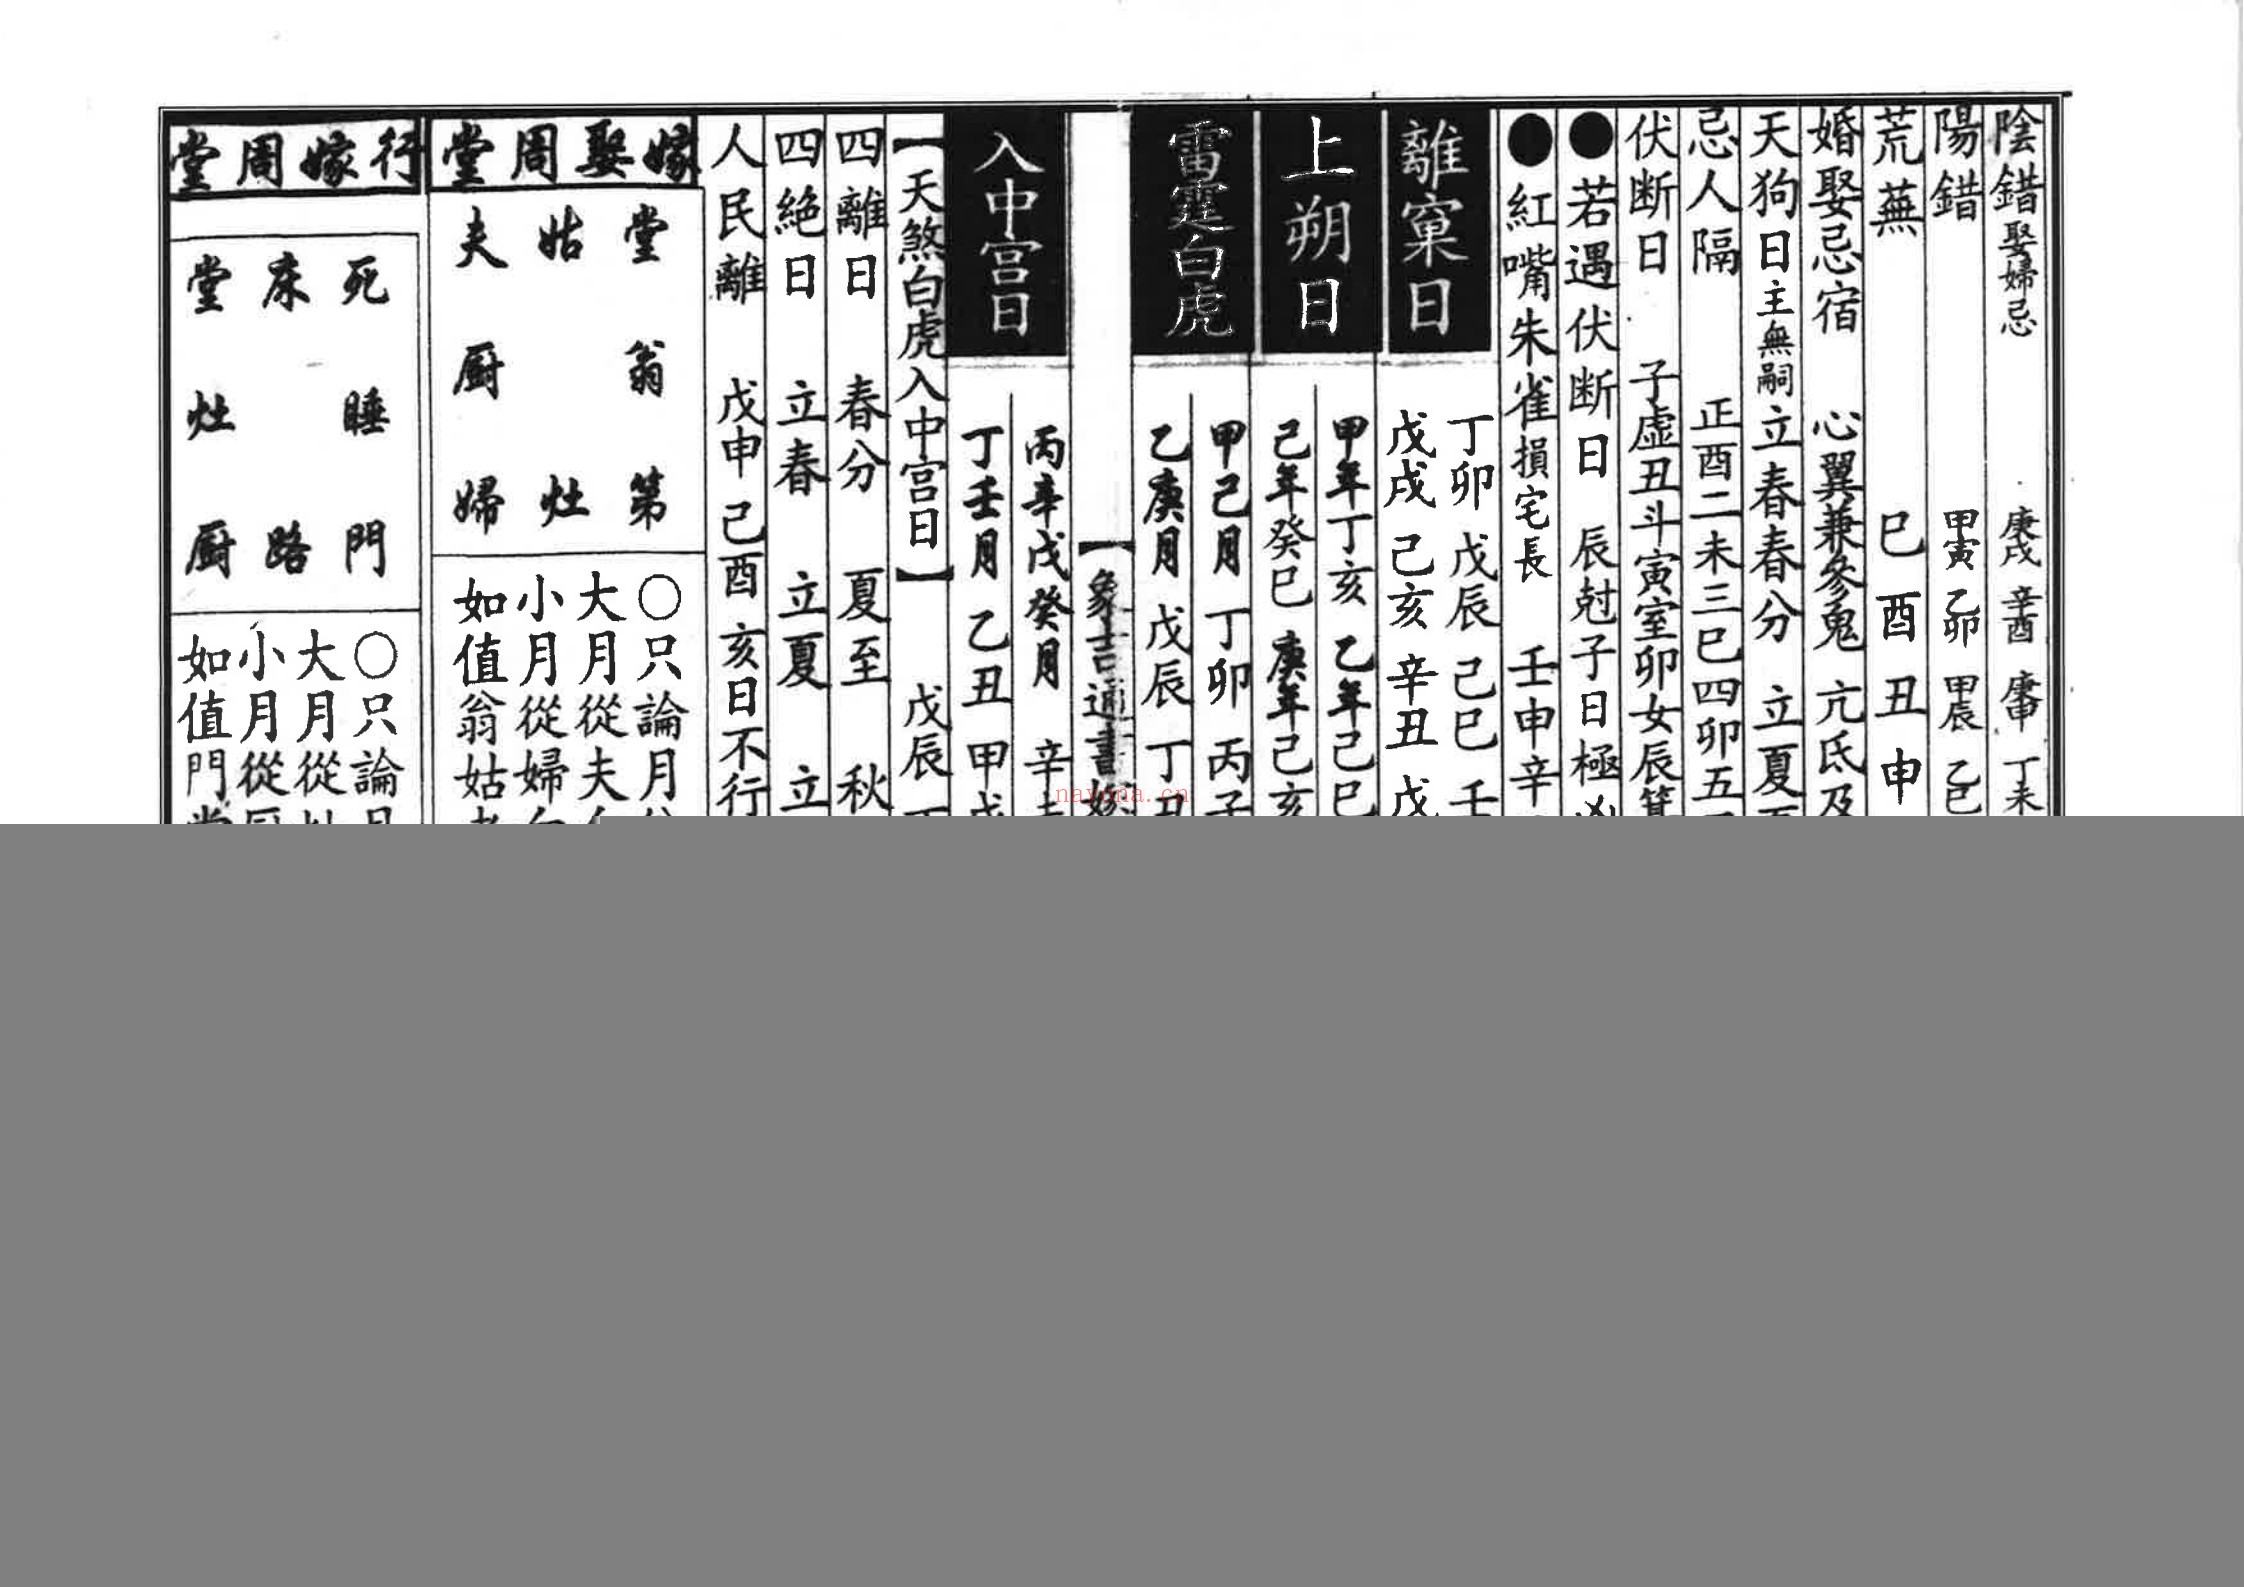 陰錯娶婦忌 庚戌 辛酉 庚申 丁未
陽錯 甲寅 乙卯 甲辰 乙巳
荒蕪 巳酉丑申
婚娶忌宿 心翼兼參鬼 亢氐及
天狗日主無嗣立春春分 立夏
忌人隔 正酉二未三巳四卯五
伏断日 子虛丑斗寅室卯女辰箕
●若遇伏断日 辰尅子日極凶
●紅嘴朱雀損宅長 壬申辛
離窠日
丁卯 戊辰 己巳 壬
戊戌 己亥 辛丑 戊
上朔日
甲年丁亥 乙年己巳
己年癸巳 庚年己亥
雷霆白虎
甲己月 丁卯 丙子
乙庚月 戊辰 丁丑
【象吉通書嫁
入中宮日
丙辛戊癸月 辛
丁壬月 乙丑 甲戌
【天煞白虎入中宮日】 戊辰 丁
四離日 春分 夏至 秋
四絕日 立春 立夏 立
人民離 戊申己酉亥日不行
嫁娶周堂
堂 姑 夫
翁 厨
第 灶 婦
○只論月
大月從夫
小月從婦
如值翁姑
行嫁周堂
死 床 堂
睡 灶
門 路 厨
○只論月
大月從灶
小月從厨
如值門堂
nayona.cn